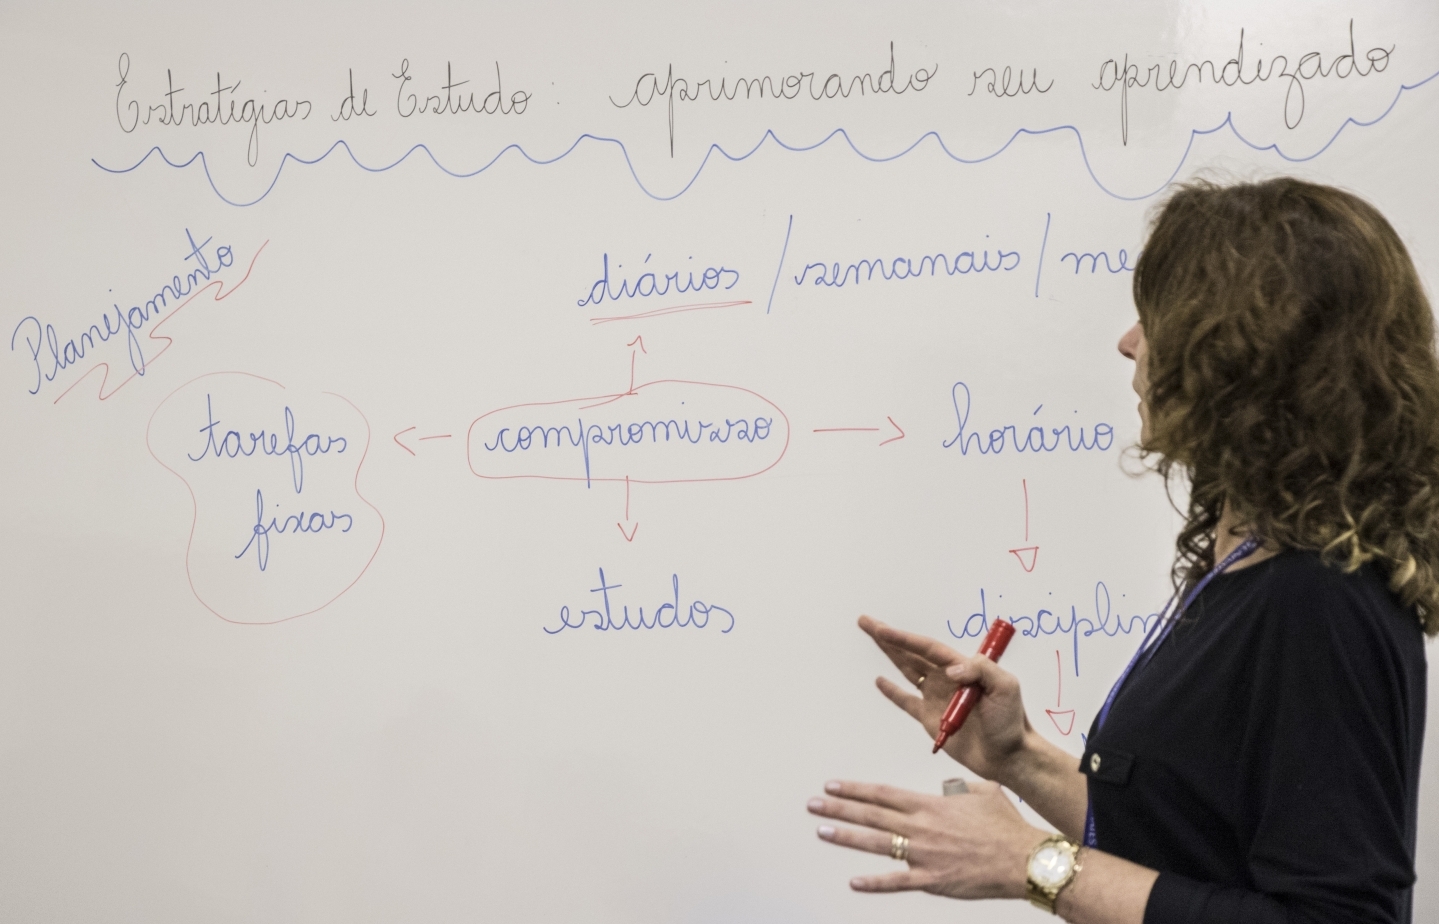 Estratégias de Estudo: aprimorando seu aprendizado
Planejamento
diários / semanais / me
tarefas
fixas
compromisso
horário
estudos
disciplin